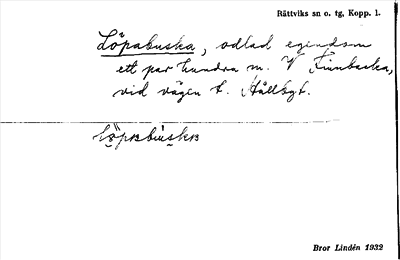 Rättviks sn o. tg, Kopp. l.
Löpabuska, odlad egendom
ett par hundra m. V Finnbacka,
vid vägen t. Hållbyt.
Bror Lindén 1932